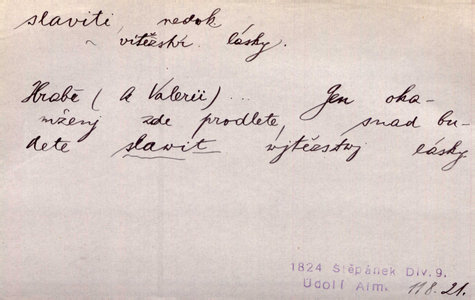 slaviti nedok
~ vítězstv. lásky.
Hrabě (A Valerii)... Jen oka-
mženj zde prodlete, snad bu-
dete slavit wjtězstwj lásky
1824 Štěpánek Div. 9.
Údolí Alm. 118.21.